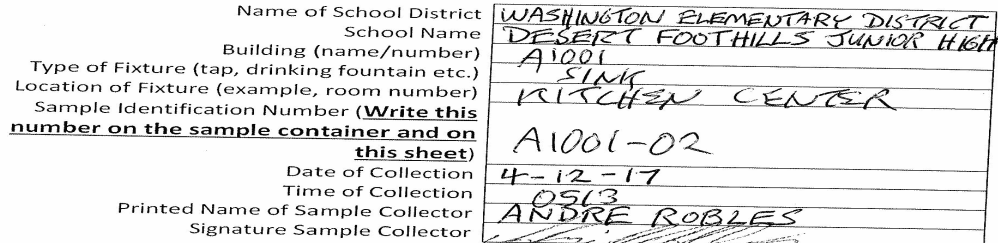 Name of School District WASHINGTON ELEMENTARY DISTRICT
School Name DESERT FOOTHILLS JUNIOR HIGH
Building (name/number) A1001
Type of Fixture (tap, drinking fountain etc.) SINK
Location of Fixture (example, room number) KITCHEN CENTER
Sample Identification Number (Write this
number on the sample container and on
this sheet) A1001-02
Date of Collection 4-12-17
Time of Collection 0513
Printed Name of Sample Collector ANDRE ROBLES
Signature Sample Collector